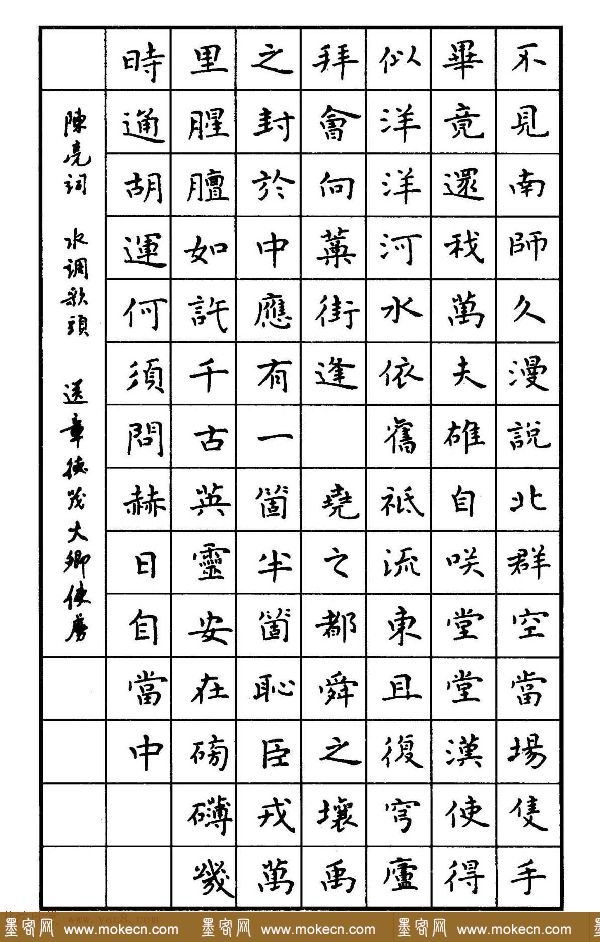 不見南師久漫說北群空當場隻手
畢竟還我萬夫雄自咲堂堂漢使得
似洋洋河水依舊祗流東且復穹廬
拜會向藁街逢 堯之都舜之壤禹
之封於中應有一箇半箇恥臣戎萬
里腥膻如許千古英靈安在磅礴幾
時通胡運何須問赫日自當中
陳亮词 水调歌頭 送章德茂大卿使虜
墨客网 www.mokecn.com 墨客网 www.mokecn.com 墨客网 www.mokecn.com